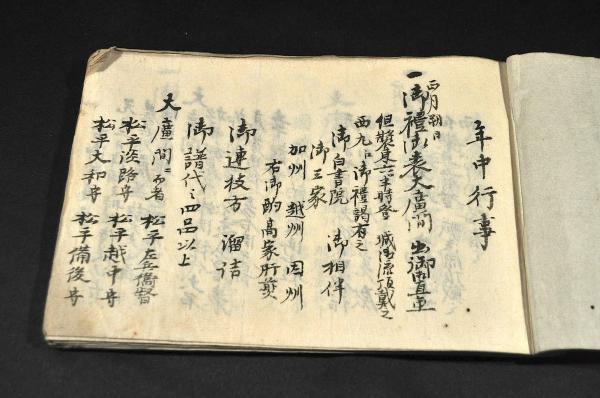 年中行事
正月朔日
一御禮於表大廣間 出御直垂
但装束六半時登 城御流頂戴之
西丸江御禮謁有之
御白書院 御相伴
御三家
加州 越州 因州
右御酌高家肝煎
御連枝方 溜詰
御譜代之四品以上
大廣間ニ而者 松平左兵衛督
松平淡路守 松平越中守
松平大和守 松平備後守